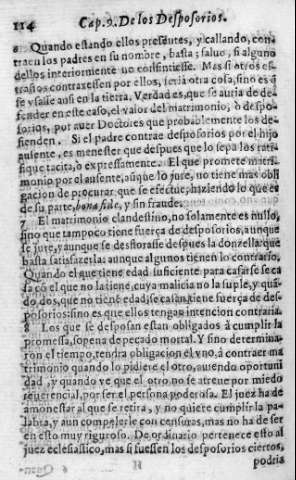 114 Cap. 9. De los Desposorios.
6 Quando estando ellos presentes, y callando, con-
traen los padres en su nombre, basta; saluo, si alguno
dellos interiormente no consintiesse. Mas si otros es-
traños contraxessen por ellos, seria otra cosa, sino es q̃
se vsasse ansi en la tierra. Verdad es, que se auria de de-
fender en este caso, el valor del matrimonio, ò despo-
sorios, por auer Doctores que probablemente los de-
fienden. Si el padre contrae desposorios por el hijo
ausente, es menester que despues que lo sepa los rati-
fique tacita, ò expressamente. El que promete matri-
monio por el ausente, aũque lo jure, no tiene mas obli
gacion de procurar que se efectue, haziendo lo que es
de su parte, bona fide, y sin fraude.
7 El matrimonio clandestino, no solamente es nullo,
sino que tampoco tiene fuerça de desposorios, aunque
se jure, y aunque se desflorasse despues la donzella: que
basta satisfazerla: aunque algunos tienen lo contrario.
Quando el que tiene edad suficiente para casarse se ca
sa cõ el que no la tiene, cuya malicia no la suple, y quã-
do, dos, que no tienẽ edad, se casan, tiene fuerça de des-
posorios: sino es que ellos tengan intencion contraria.
8 Los que se desposan estan obligados à cumplir la
promessa, sopena de pecado mortal. Y sino determina-
ron el tiempo, tendra obligacion el vno, à contraer ma
trimonio quando lo pidiere el otro, auiendo oportuni
dad, y quando vee que el otro no se atreue por miedo
reuerencial, por ser el persona poderosa. El juez ha de
amonestar al que se retira, y no quiere cumplir la pa-
labra, y aun compelerle con censuras, mas no ha de ser
en esto muy riguroso. De ordinario pertenece esto al
juez eclesiastico, mas si fuessen los desposorios ciertos,
H podria